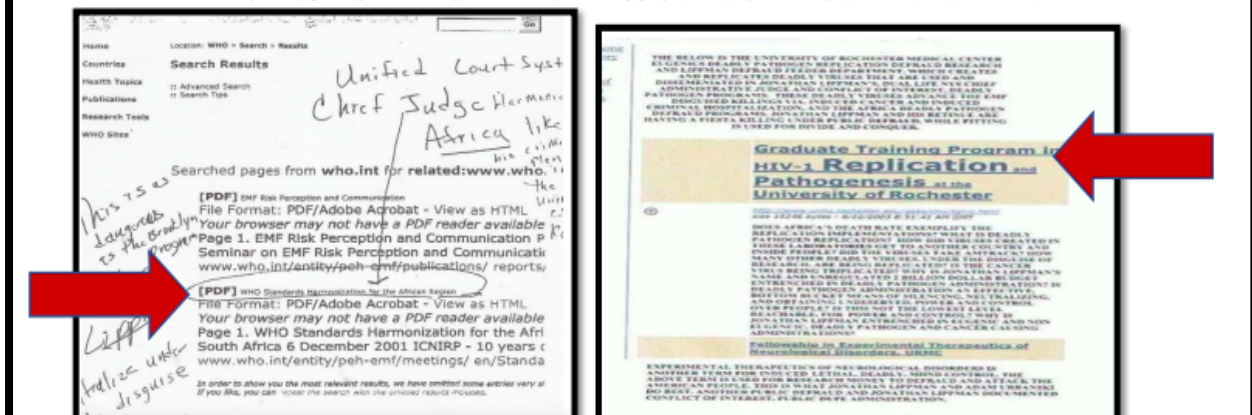 Go
Home
Countries
Health Topics
Publications
Research Tools
WHO Sites
Location: WHO > Search > Results
Search Results
:: Advanced Search
:: Search Tips
Unified Court Syst
Chief Judge Harmonic
Africa like
his
plan
the
Searched pages from who.int for related:www.who.
This is as
dangerous
as the Brooklyn
program
[PDF] EMF Risk Perception and Communication
File Format: PDF/Adobe Acrobat - View as HTML
Your browser may not have a PDF reader available
Page 1. EMF Risk Perception and Communication P
Seminar on EMF Risk Perception and Communicatio
www.who.int/entity/peh-emf/publications/ reports/
[PDF] WHO Standards Harmonization for the African Region
File Format: PDF/Adobe Acrobat - View as HTML
Your browser may not have a PDF reader available
Page 1. WHO Standards Harmonization for the Afri
South Africa 6 December 2001 ICNIRP - 10 years o
www.who.int/entity/peh-emf/meetings/ en/Standa
Lipp
under
disguise
In order to show you the most relevant results, we have omitted some entries very si
If you like, you can repeat the search with the omitted results included.
THE BELOW IS THE UNIVERSITY OF ROCHESTER MEDICAL CENTER
EUGENICS DEADLY PATHOGEN REPLICATION DEFRAUD RESEARCH
AND LIPPMAN DEFRAUD FEEDER DEPARTMENT, WHICH CREATES
AND REPLICATES DEADLY VIRUSES THAT ARE USED AND
DISSEMINATED IN JONATHAN LIPPMAN'S DUAL LIFE AS CHIEF
ADMINISTRATIVE JUDGE AND CONFLICT OF INTEREST, DEADLY
PATHOGEN PROGRAMS. THESE DEADLY VIRUSES ADVANCE THE EMF
DISGUISED KILLINGS VIA, INDUCED CANCER AND INDUCED
CRIMINAL HOSPITALIZATION, AND THE AFRICA DEADLY PATHOGEN
DEFRAUD PROGRAMS. JONATHAN LIPPMAN AND HIS RETINUE ARE
HAVING A FIESTA KILLING UNDER PUBLIC DEFRAUD, WHILE PITTING
IS USED FOR DIVIDE AND CONQUER.
Graduate Training Program in
HIV-1 Replication and
Pathogenesis at the
University of Rochester
DOES AFRICA'S DEATH RATE EXEMPLIFY THE
REPLICATION IMPLEMENTATIONS? WHAT IS DEADLY
PATHOGEN REPLICATION? HOW DID VIRUSES CREATED IN
THESE LABORATORIES GET TO ANOTHER COUNTRY AND
INSIDE PEOPLE? DID THE VIRUSES TAKE AMTRACK? HOW
MANY OTHER DEADLY VIRUSES, UNDER THE DISGUISE OF
RESEARCH, ARE BEING REPLICATED? IS THE CANCER
VIRUS BEING TRIPLICATED? WHY IS JONATHAN LIPPMAN'S
NAME AND UNREGULATED 2 BILLION DOLLAR BUDGET
ENTRENCHED IN DEADLY PATHOGEN ADMINISTRATION? IS
DEADLY PATHOGEN ADMINISTRATION AN EFFECTIVE,
BOTTOM BUCKET MEANS OF SILENCING, NEUTRALIZING,
AND OBTAINING UNDERBYED, POWER AND CONTROL
OVER PEOPLE? IS THIS NOT THE LOWEST LEVEL
REACHABLE, FOR POWER AND CONTROL? WHY IS
JONATHAN LIPPMAN ENTRENCHED IN EUGENIC AND NON
EUGENCIC, DEADLY PATHOGEN AND CANCER CAUSING
ADMINISTRATIONS?
Fellowship in Experimental Therapeutics of
Neurological Disorders, URMC
EXPERIMENTAL THERAPEUTICS OF NEUROLOGICAL DISORDERS IS
ANOTHER TERM FOR INDUCED LETHAL, DEADLY, MIND CONTROL. THE
ABOVE TERM IS USED FOR RESEARCH MONEY TO DEFRAUD AND ATTACK THE
AMERICAN PEOPLE. THIS IS WHAT JONATHAN LIPPMAN AND ADAM URBANSKI
DO BEST. ANOTHER PUBLIC DEFRAUD AND JONATHAN LIPPMAN DOCUMENTED
CONFLICT OF INTEREST, PUBLIC DUPE ADMINISTRATION.